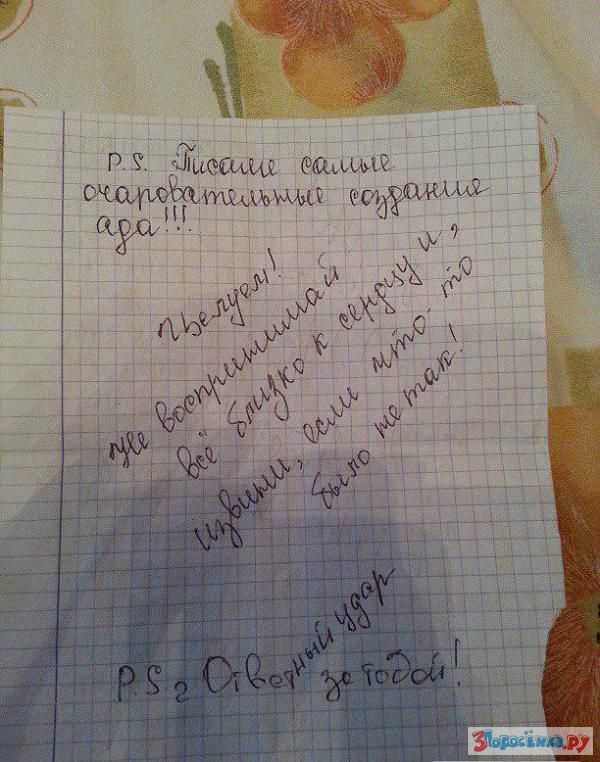 P.S. Писали самые
очаровательные создания
ада!!!
Целуем!
не воспринимай
всё близко к сердцу и,
извини, если что-то
было не так!
P.S 2 Ответный удар
за тобой!
3Поросёнка.ру